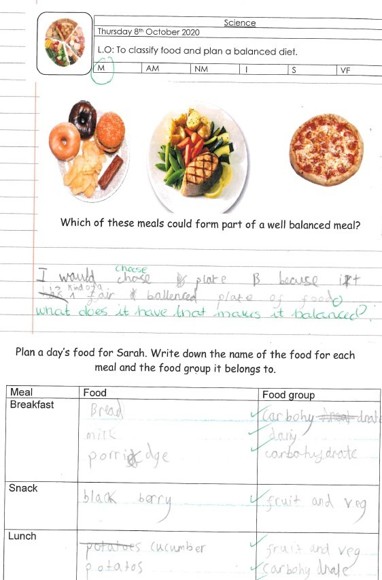 Science
Thursday 8th October 2020
L.O: To classify food and plan a balanced diet.
M AM NM I S VF
Which of these meals could form part of a well balanced meal?
choose
I would chose plate B becuse it
is a fair & ballenced plate of food
what does it have that makes it balanced?
Plan a day's food for Sarah. Write down the name of the food for each
meal and the food group it belongs to.
Meal Food Food group
Breakfast Bread carbohy drate
milk dairy
porridge carbohydrate
Snack black berry fruit and veg
Lunch potatoes cucumber fruit and veg
potatos carbohydrate